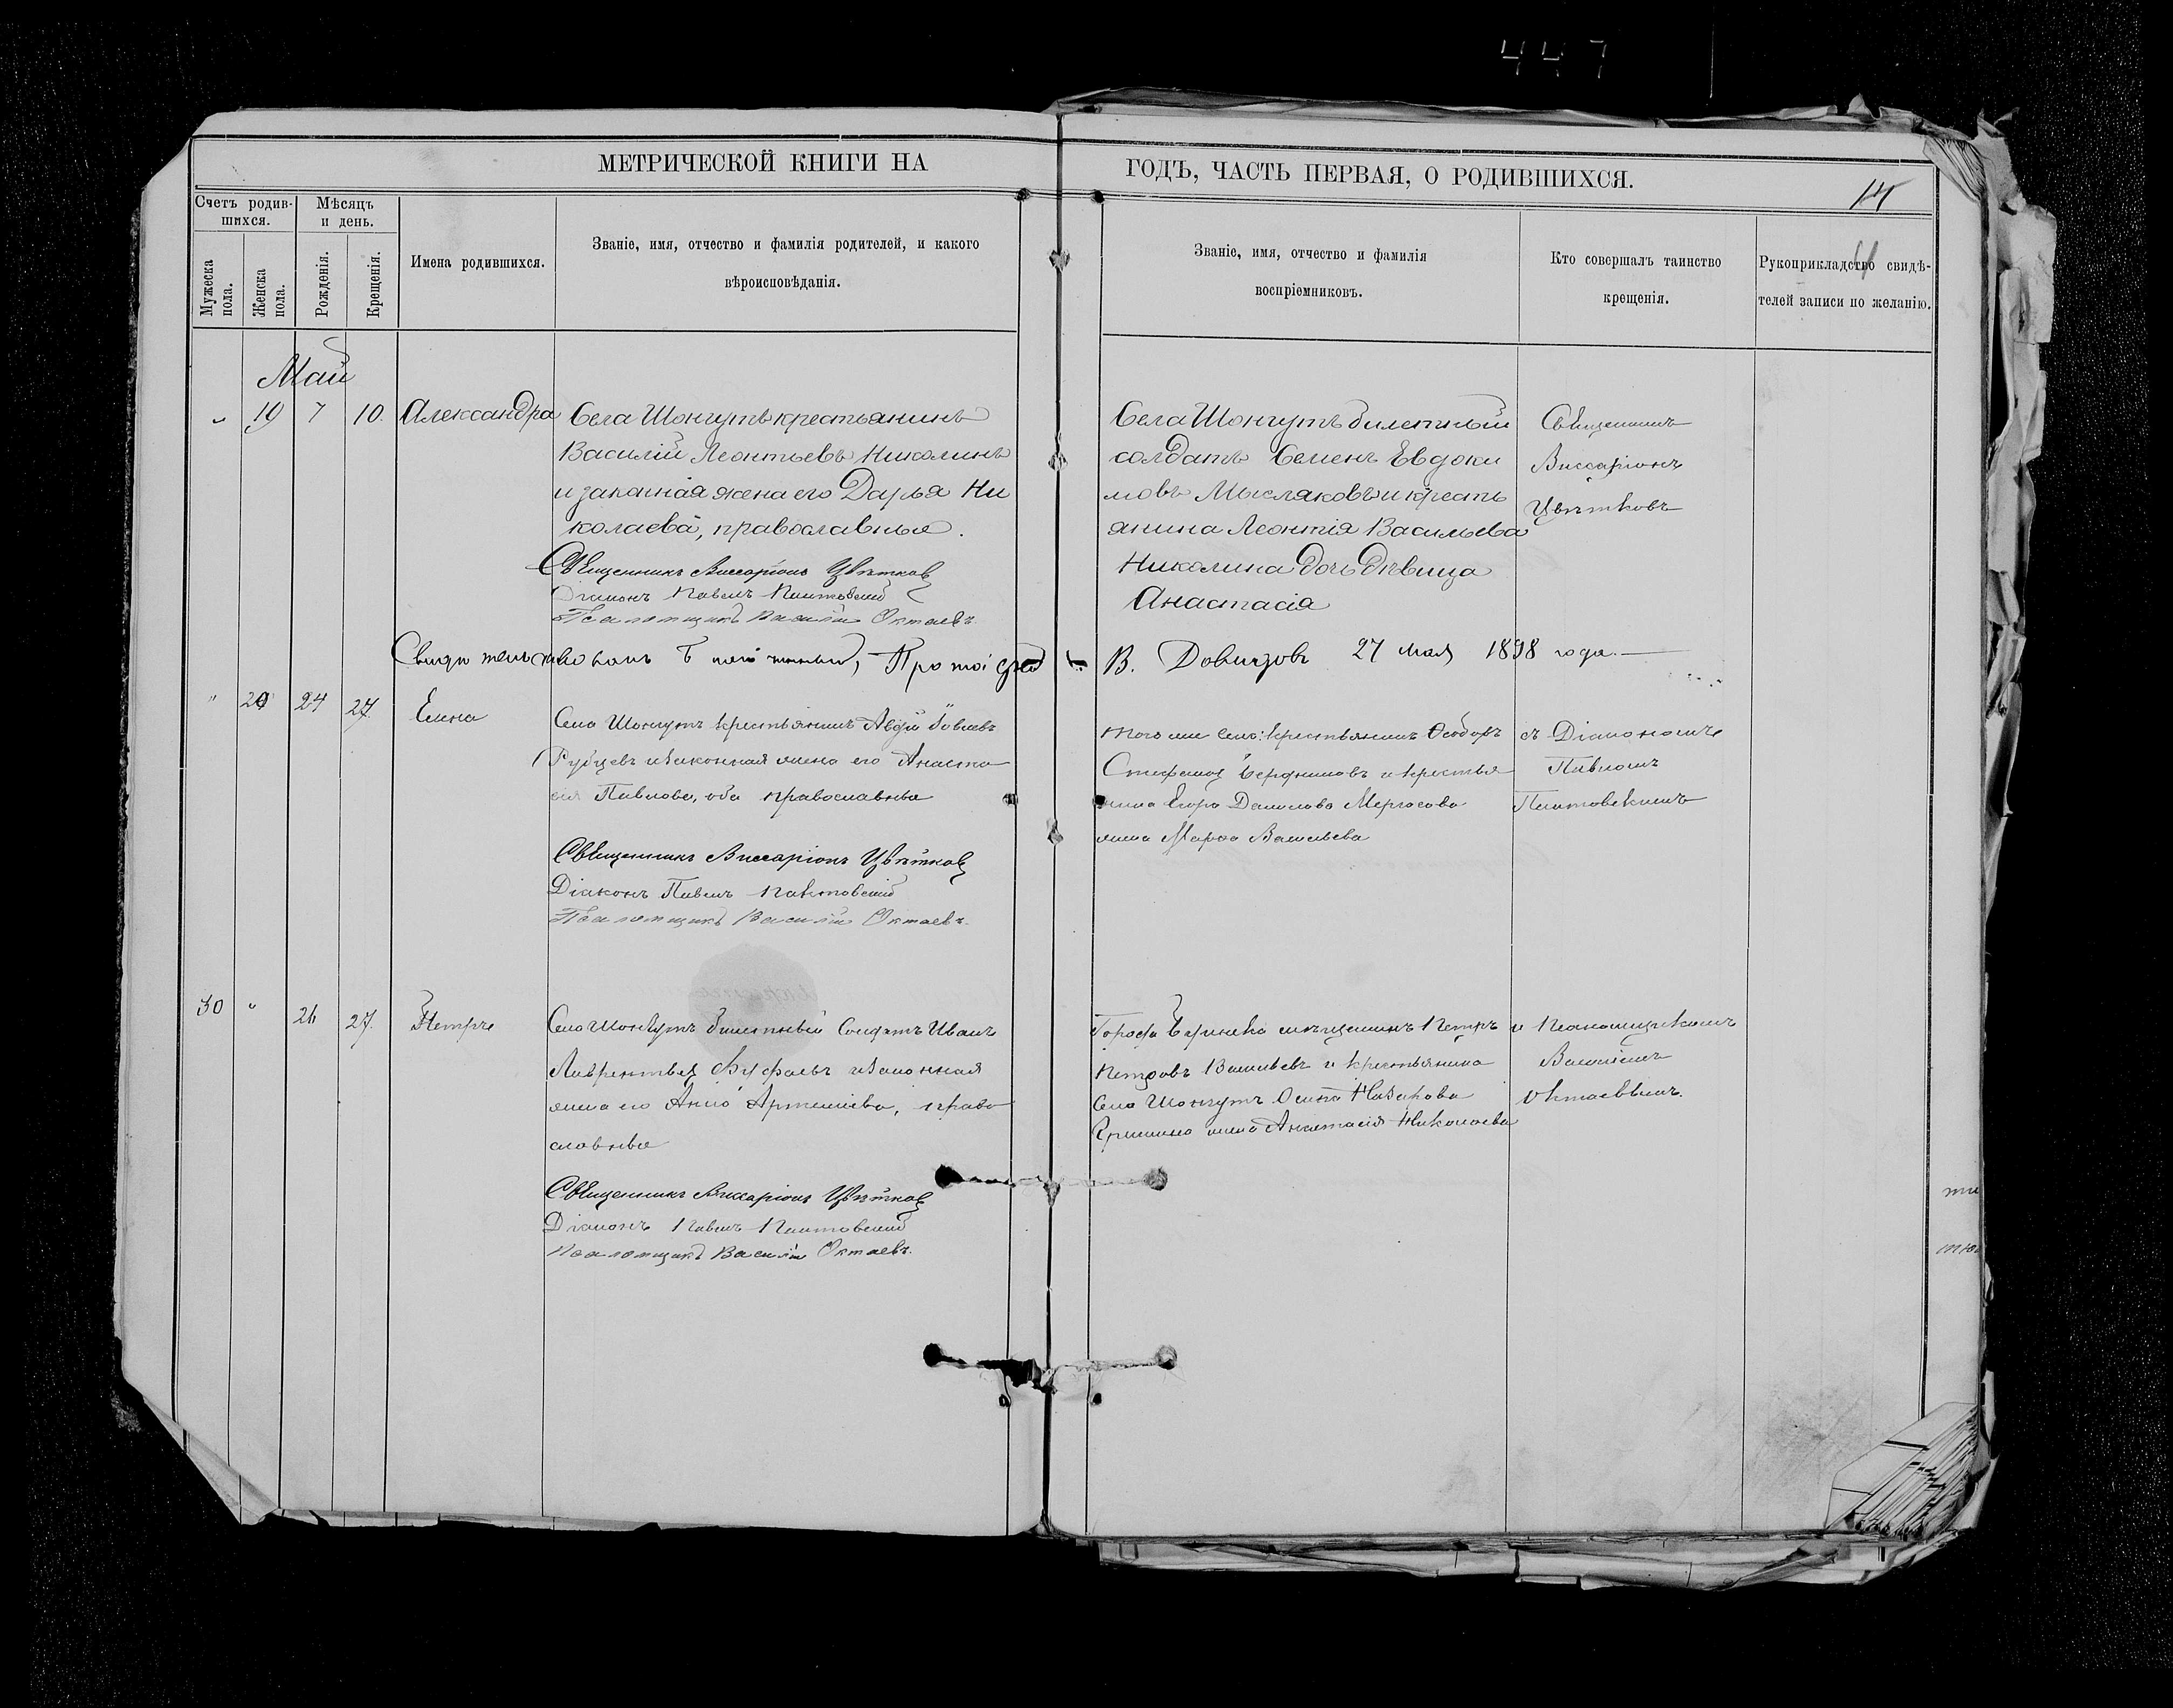 447
МЕТРИЧЕСКОЙ КНИГИ НА ГОДЪ, ЧАСТЬ ПЕРВАЯ, О РОДИВШИХСЯ.
14
Счетъ родив-
шихся.
Мѣсяцъ
и день.
Мужеска
пола.
Женска
пола.
Рожденія.
Крещенія.
Имена родившихся.
Званіе, имя, отчество и фамилія родителей, и какого
вѣроисповѣданія.
Званіе, имя, отчество и фамилія
воспріемниковъ.
Кто совершалъ таинство
крещенія.
Рукоприкладство свидѣ-
телей записи по желанію.
Май
" 19 7 10. Александра
Села Шонгутъ крестьянинъ
Василій Леонтьевъ Николинъ
и законная жена его Дарья Ни
колаева, православныя.
Священникъ Виссаріонъ Цвѣтков
Діаконъ Павелъ
Псаломщикъ Василій Октаевъ.
Села Шонгутъ билетный
солдатъ Семенъ Евдоки
мовъ Мысляковъ и кресть
янина Леонтія Васильева
Николина дочь дѣвица
Анастасія
Священникъ
Виссаріонъ
Цвѣтковъ
В. Довидовъ 27 мая 1898 года.
" 20 24 27. Елена
Села Шонгутъ крестьянинъ Авдій
Рубцевъ и законная жена его Анаста
сія Павлова, оба православные
Священникъ Виссаріонъ Цвѣтков
Діаконъ Павелъ
Псаломщикъ Василій Октаевъ.
того же села крестьянинъ Ѳеодоръ
Стефановъ и крестья
нина Егора Данилова
жена Марѳа Васильева
съ Діакономъ
Павломъ
30 " 26 27. Петръ
Села Шонгутъ билетный Солдатъ Иванъ
Лаврентьевъ и законная
жена его Анна Артемьева, право
славные
Священникъ Виссаріонъ Цвѣтков
Діаконъ Павелъ
Псаломщикъ Василій Октаевъ.
Города мѣщанинъ Петръ
Петровъ Васильевъ и крестьянина
села Шонгутъ Осипа Назарова
Гришина жена Анастасія Николаева
и Псаломщикомъ
Василіемъ
Октаевымъ.